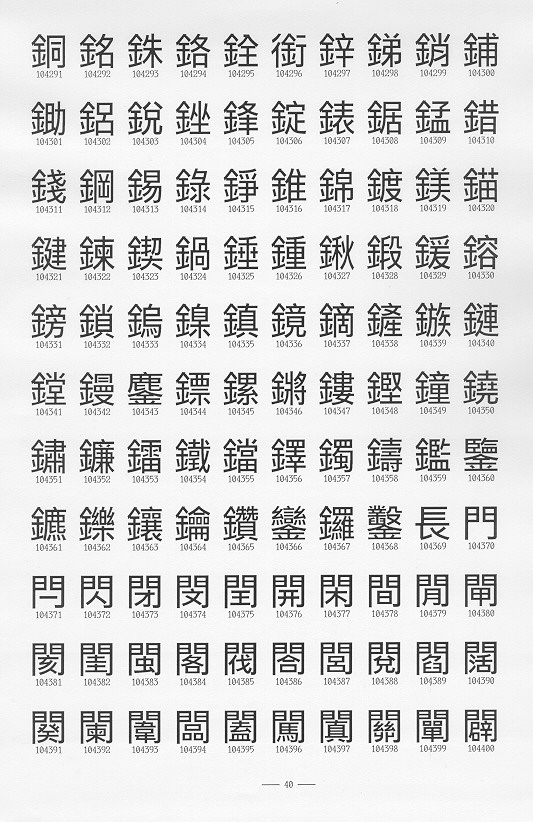 銅 銘 銖 鉻 銓 銜 鋅 銻 銷 鋪
104291 104292 104293 104294 104295 104296 104297 104298 104299 104300
鋤 鋁 銳 銼 鋒 錠 錶 鋸 錳 錯
104301 104302 104303 104304 104305 104306 104307 104308 104309 104310
錢 鋼 錫 錄 錚 錐 錦 鍍 鎂 錨
104311 104312 104313 104314 104315 104316 104317 104318 104319 104320
鍵 鍊 鍥 鍋 錘 鍾 鍬 鍛 鍰 鎔
104321 104322 104323 104324 104325 104326 104327 104328 104329 104330
鎊 鎖 鎢 鎳 鎮 鏡 鏑 鏟 鏃 鏈
104331 104332 104333 104334 104335 104336 104337 104338 104339 104340
鏜 鏝 鏖 鏢 鏍 鏘 鏤 鏗 鐘 鐃
104341 104342 104343 104344 104345 104346 104347 104348 104349 104350
鏽 鐮 鐳 鐵 鐺 鐸 鐲 鑄 鑑 鑒
104351 104352 104353 104354 104355 104356 104357 104358 104359 104360
鑣 鑠 鑲 鑰 鑽 鑾 鑼 鑿 長 門
104361 104362 104363 104364 104365 104366 104367 104368 104369 104370
閂 閃 閉 閔 閏 開 閑 間 閒 閘
104371 104372 104373 104374 104375 104376 104377 104379 104379 104380
閡 閨 閩 閣 閥 閤 閭 閱 閻 闊
104381 104382 104383 104384 104385 104386 104387 104388 104389 104390
闋 闌 闈 闆 闔 闖 闐 關 闡 闢
104391 104392 104393 104394 104395 104396 104397 104398 104399 104400
— 40 —